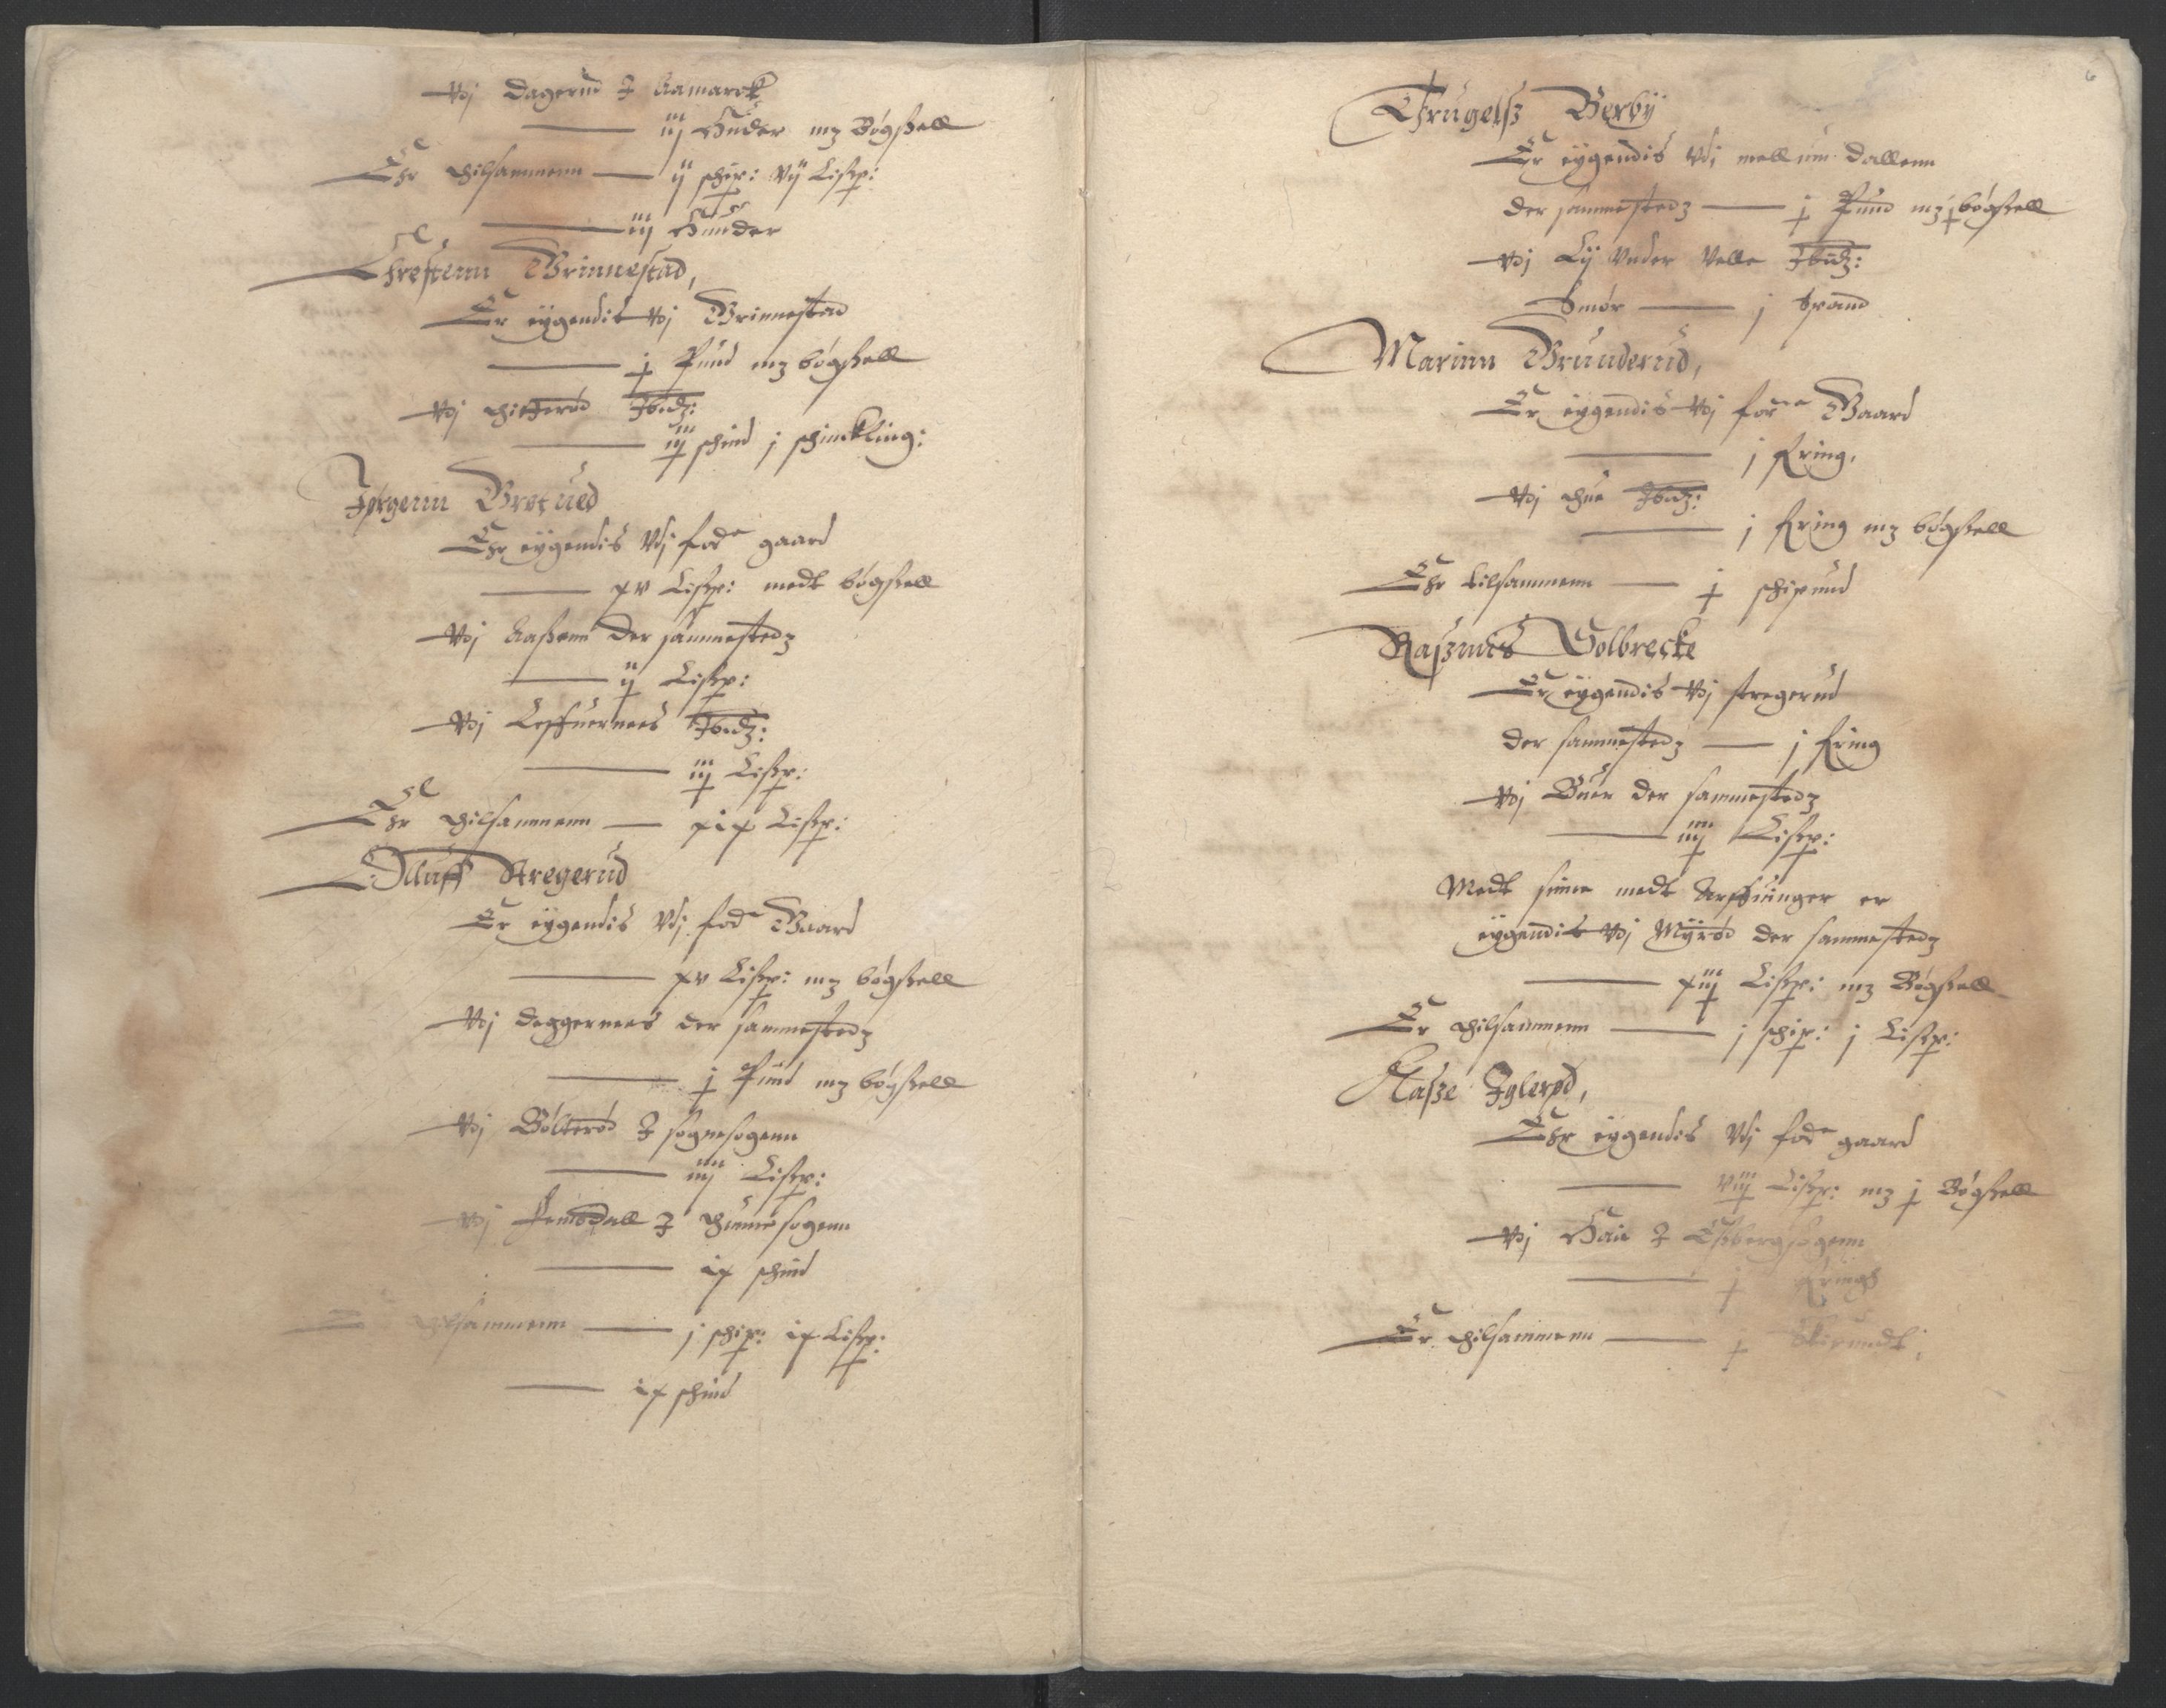 Vdj Dagerud J Aamarck
iij Huder mz Bøgszell
Ehr thilsammenn ij schip: vij Lissp:
iij Huder
Chrestenn Grinnestad,
Er eÿgendis Vdj Grinnestad
j Pund mz bøgszell
Vdj Ibidz:
iij schind j schinckling:
Jørgenn Bretued
Ehr eÿgendis Vdj fode gaard
xv Lissp: medt bøgszell
Vdj Aaszenn der sammestedz
ij Lissp:
Vdj Leffuernees Ibidz:
iij Lissp:
Ehr thilsammenn xix Lissp:
Olluff Kregerud
Er eÿgendis Vdj fode Gaard
xv Lissp: mz bøgszell
Vdj Daggernees der sammestedz
j Pund mz bøgszell
Vdj Bølterød J sognesogenn
iiij Lissp:
Vdj J sogenn
ix schind
thilsammenn j schip: ix Lissp:
ix schind
6
Trugelsz Berbÿ
Er eÿgendis Vdj mellum Dallenn
der sammestedz j Pund mz j bøgszell
Vdj Lÿ Vnder Valle Ibidz:
Smør j spand
Marinn Brunderud,
Er eÿgendis Vdj forne Gaard
j Fring,
Vdj Ibidz:
j Fring mz bøgszell
Ehr tilsammenn j schipund
Raszmus Solbrecke
Er eÿgendis Vdj Kregerud
der sammestedz j Fring
Vdj Buer der sammestedz
iiij Lissp:
Medt sinne medt Arffuinger er
eÿgendis Vdj Mÿrød der sammestedz
xiij Lissp: mz Bøgszell
Er thilsammenn j schip: j Lissp:
Aasze Iglerød,
Ehr eÿgendis Vdj fode gaard
viij Lissp: mz j Bøgszell
Vdj J sogenn
j Fringh
Er thilsammenn j Skipundt,